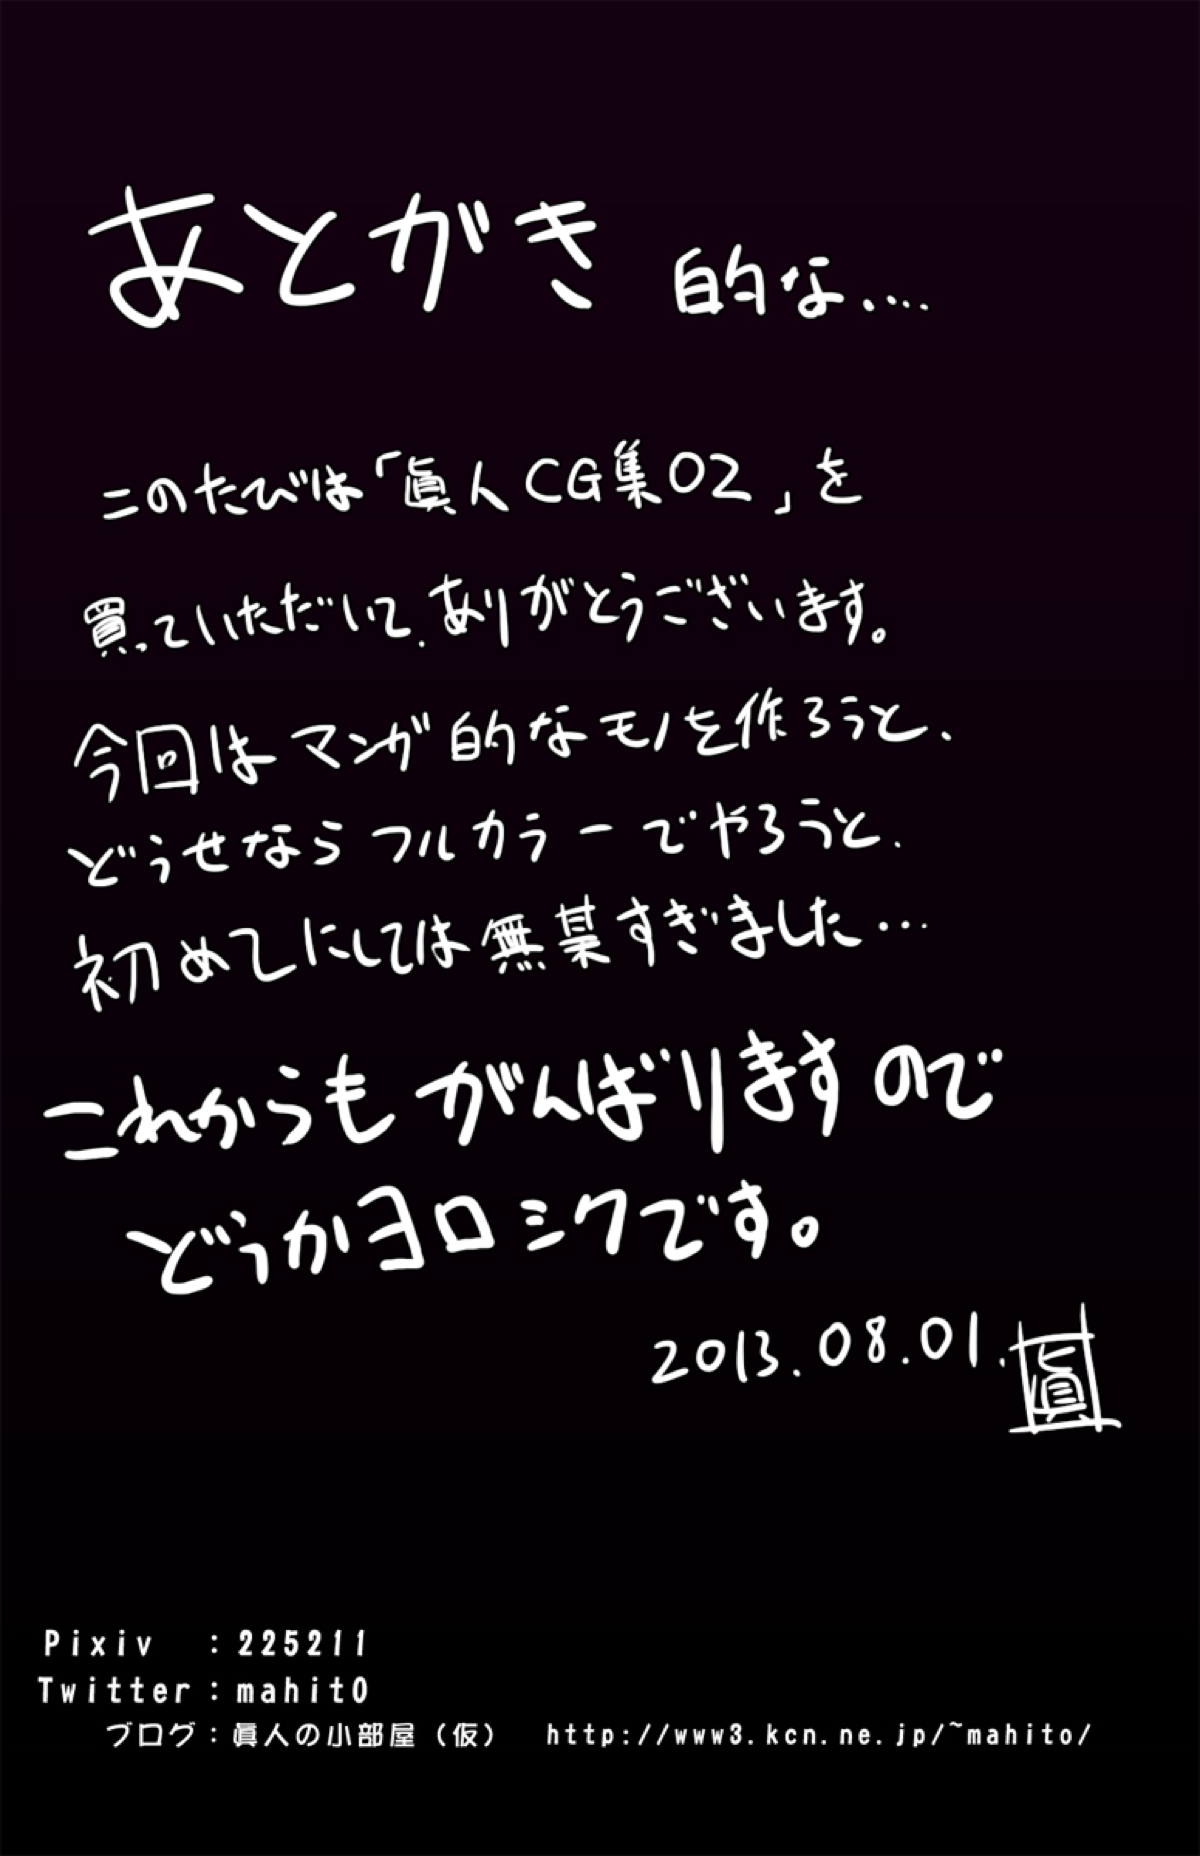 あとがき 的な....
このたびは「眞人CG集02」を
買っていただいて、ありがとうございます。
今回はマンガ的なモノを作ろうと、
どうせならフルカラーでやろうと、
初めてにしては無謀すぎました…
これからもがんばりますので
どうかヨロシクです。
2013.08.01.
眞
Pixiv :225211
Twitter:mahit0
ブログ:眞人の小部屋(仮) http://www3.kcn.ne.jp/~mahito/